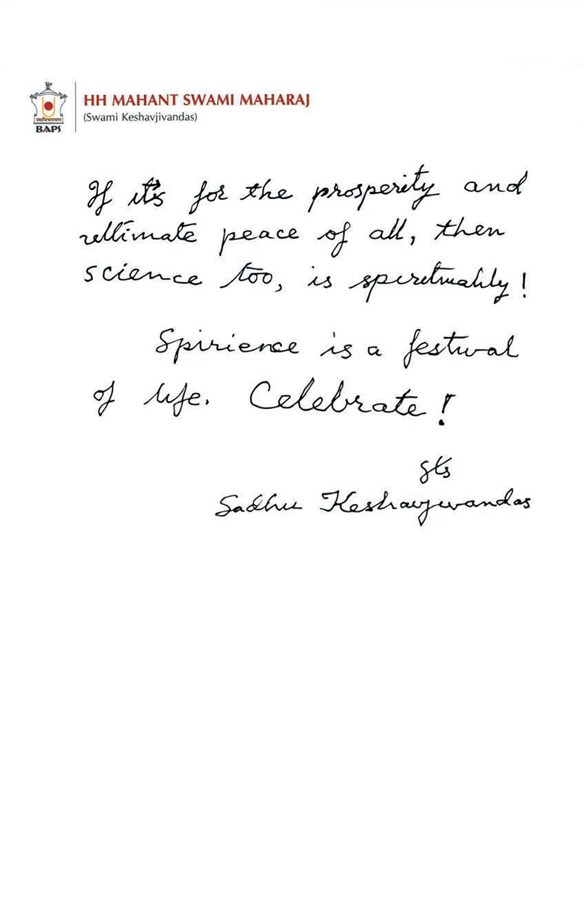 BAPS
HH MAHANT SWAMI MAHARAJ
(Swami Keshavjivandas)
If it's for the prosperity and
ultimate peace of all, then
science too, is spirituality!
Spirience is a festival
of life. Celebrate!
Sadhu Keshavjivandas